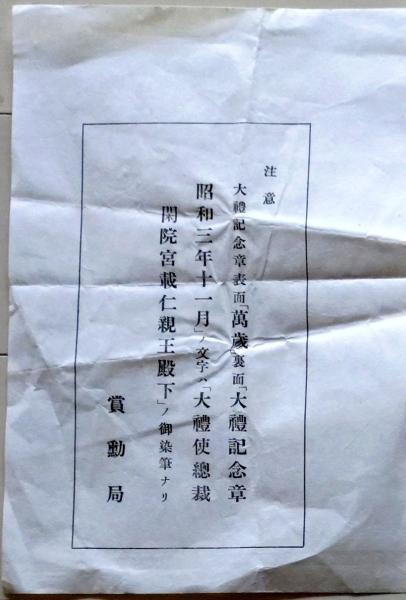 注意
大禮記念章表面「萬歲」裏面「大禮記念章
昭和三年十一月」ノ文字ハ「大禮使總裁
閑院宮載仁親王殿下」ノ御染筆ナリ
賞勳局